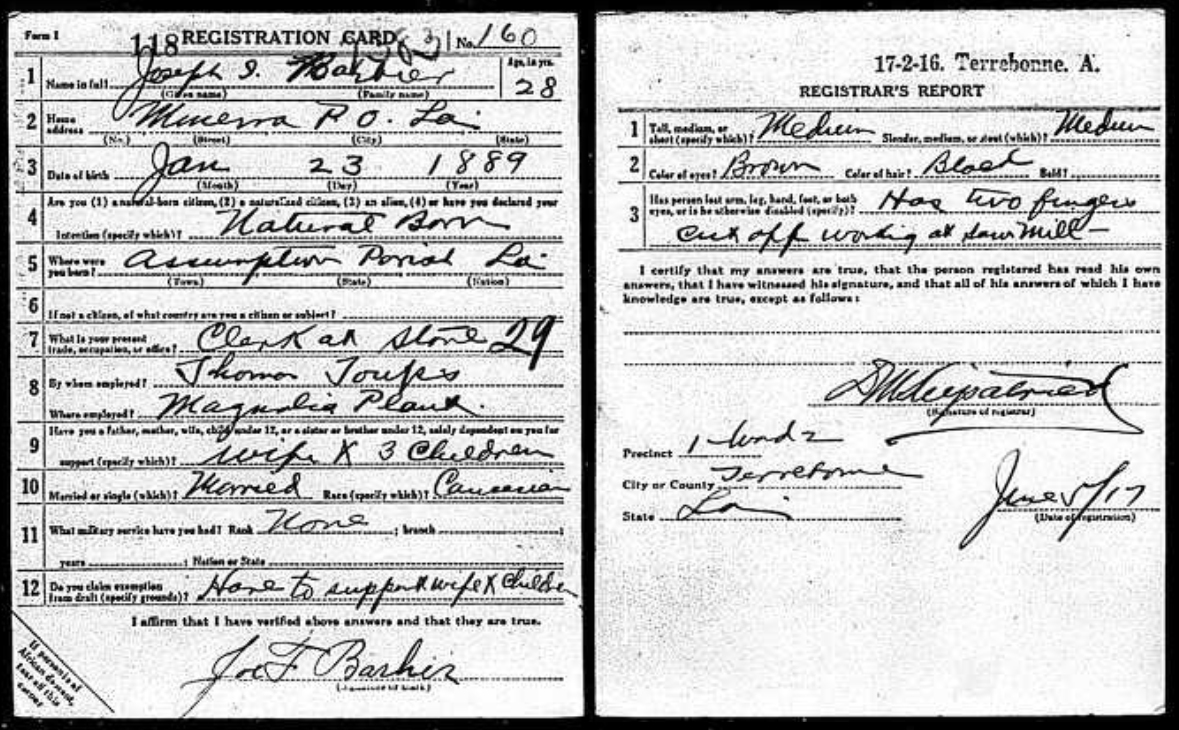 Form 1
118 REGISTRATION CARD No. 160
1 Name in full Joseph Barbier Age, in yrs. 28
(Given name) (Family name)
2 Home address Minerva P O. La
(No.) (Street) (City) (State)
3 Date of birth Jan 23 1889
(Month) (Day) (Year)
4 Are you (1) a natural-born citizen, (2) a naturalized citizen, (3) an alien, (4) or have you declared your
intention (specify which)? Natural Born
5 Where were you born? Assumption Parish La
(Town) (State) (Nation)
6 If not a citizen, of what country are you a citizen or subject?
7 What is your present trade, occupation, or office? Clerk at Store 29
8 By whom employed? Thomas Toups
Where employed? Magnolia Plant.
9 Have you a father, mother, wife, child under 12, or a sister or brother under 12, solely dependent on you for
support (specify which)? wife X 3 Children
10 Married or single (which)? Married Race (specify which)? Caucasian
11 What military service have you had? Rank None ; branch ;
years ; Nation or State
12 Do you claim exemption from draft (specify grounds)? Have to support wife X Children
I affirm that I have verified above answers and that they are true.
Joe F Barbier
If person is of
African descent,
tear off this
corner
17-2-16. Terrebonne. A.
REGISTRAR'S REPORT
1 Tall, medium, or short (specify which)? Medium Slender, medium, or stout (which)? Medium
2 Color of eyes? Brown Color of hair? Black Bald?
3 Has person lost arm, leg, hand, foot, or both eyes, or is he otherwise disabled (specify)? Has two fingers
cut off working at saw mill
I certify that my answers are true, that the person registered has read his own
answers, that I have witnessed his signature, and that all of his answers of which I have
knowledge are true, except as follows:
(Signature of registrar)
Precinct 1 Ward 2
City or County Terrebonne
State La
June 5/17
(Date of registration)